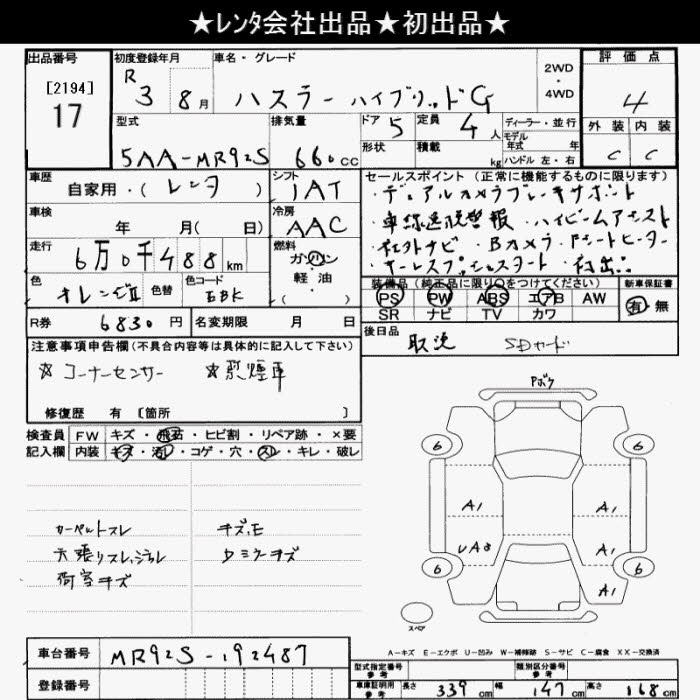 ★レンタ会社出品★初出品★
出品番号
[2194]
17
初度登録年月
R 3 8月
車名・グレード
ハスラー ハイブリッドG
2WD
・
4WD
評価点
4
外装 内装
C C
型式
5AA-MR92S
排気量
660cc
ドア 5
定員 4人
ディーラー・並行
モデル
年式 年
形状
積載 kg
ハンドル 左・右
車歴
自家用・(レンタ)
シフト
IAT
セールスポイント(正常に機能するものに限ります)
・デュアルカメラブレーキサポート
・車線逸脱警報・ハイビームアシスト
・社外ナビ・Bカメラ・Fシートヒーター
車検
年 月( 日)
冷房
AAC
走行
6万0千488km
燃料
ガソリン
軽油
( )
色
オレンジII
色替
色コード
EBK
装備品(純正品に限り○をつけてください)
PS PW ABS エアB AW
SR ナビ TV カワ
新車保証書
有・無
R券 6830円
名変期限 月 日
後日品
取説 SDカード
注意事項申告欄(不具合内容等は具体的に記入して下さい)
☆コーナーセンサー ☆禁煙車
修復歴 有 [箇所 ]
検査員
記入欄
FW キズ・飛石・ヒビ割・リペア跡・×要
内装 キズ・汚レ・コゲ・穴・スレ・キレ・破レ
カーペットスレ
天張リスレ,ジョレ
荷室キズ
チズ,モ
ウミラーキズ
Pボケ
6 6
A1 A1
UA8 A1
6 6
A1
スペア
A-キズ E-エクボ U-凹み W-補修跡 S-サビ C-腐食 XX-交換済
車台番号
MR92S-192487
登録番号
型式指定番号
参考
類別区分番号
参考
車庫証明用
参考
長さ 339cm 幅 147cm 高さ 168cm